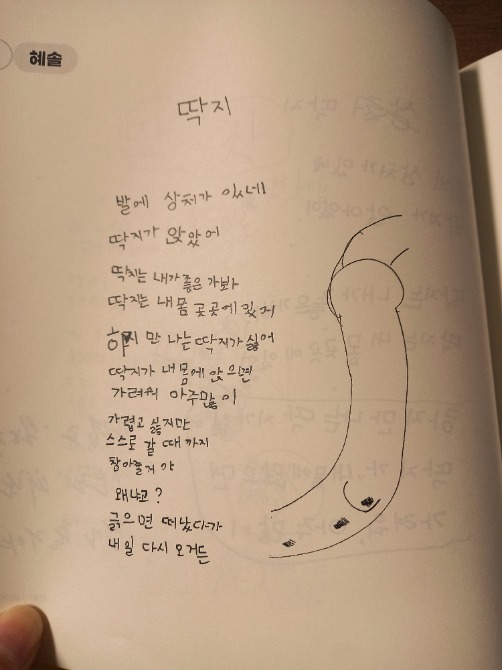 혜솔
딱지
발에 상처가 있네
딱지가 앉았어
딱지는 내가 좋은 가봐
딱지는 내 몸 곳곳에 있지
하지 만 나는 딱지가 싫어
딱지가 내 몸에 앉으면
가려워 아주많이
가렵고 싫지만
스스로 갈 때 까지
참아줄거 야
왜냐고?
긁으면 떠났다가
내일 다시 오거든